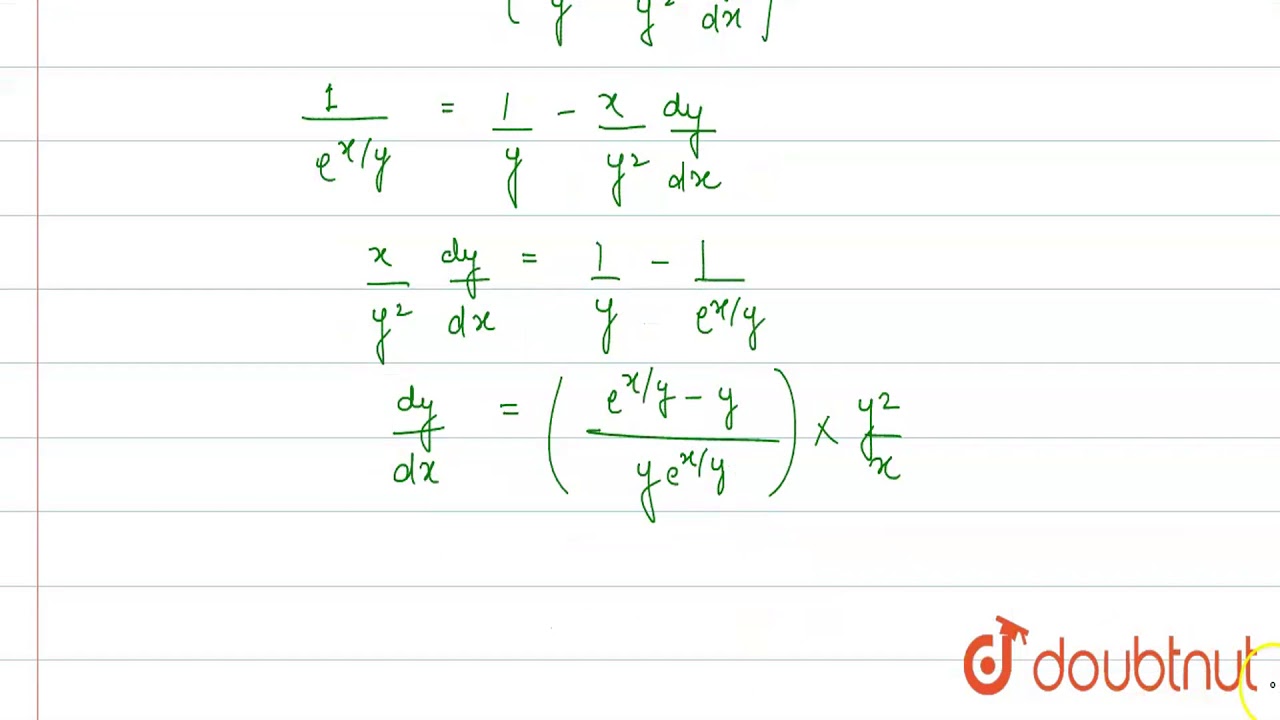 ( y y² dx ]
1/e^x/y = 1/y - x/y² dy/dx
x/y² dy/dx = 1/y - 1/e^x/y
dy/dx = ( e^x/y - y / y e^x/y ) × y²/x
doubtnut